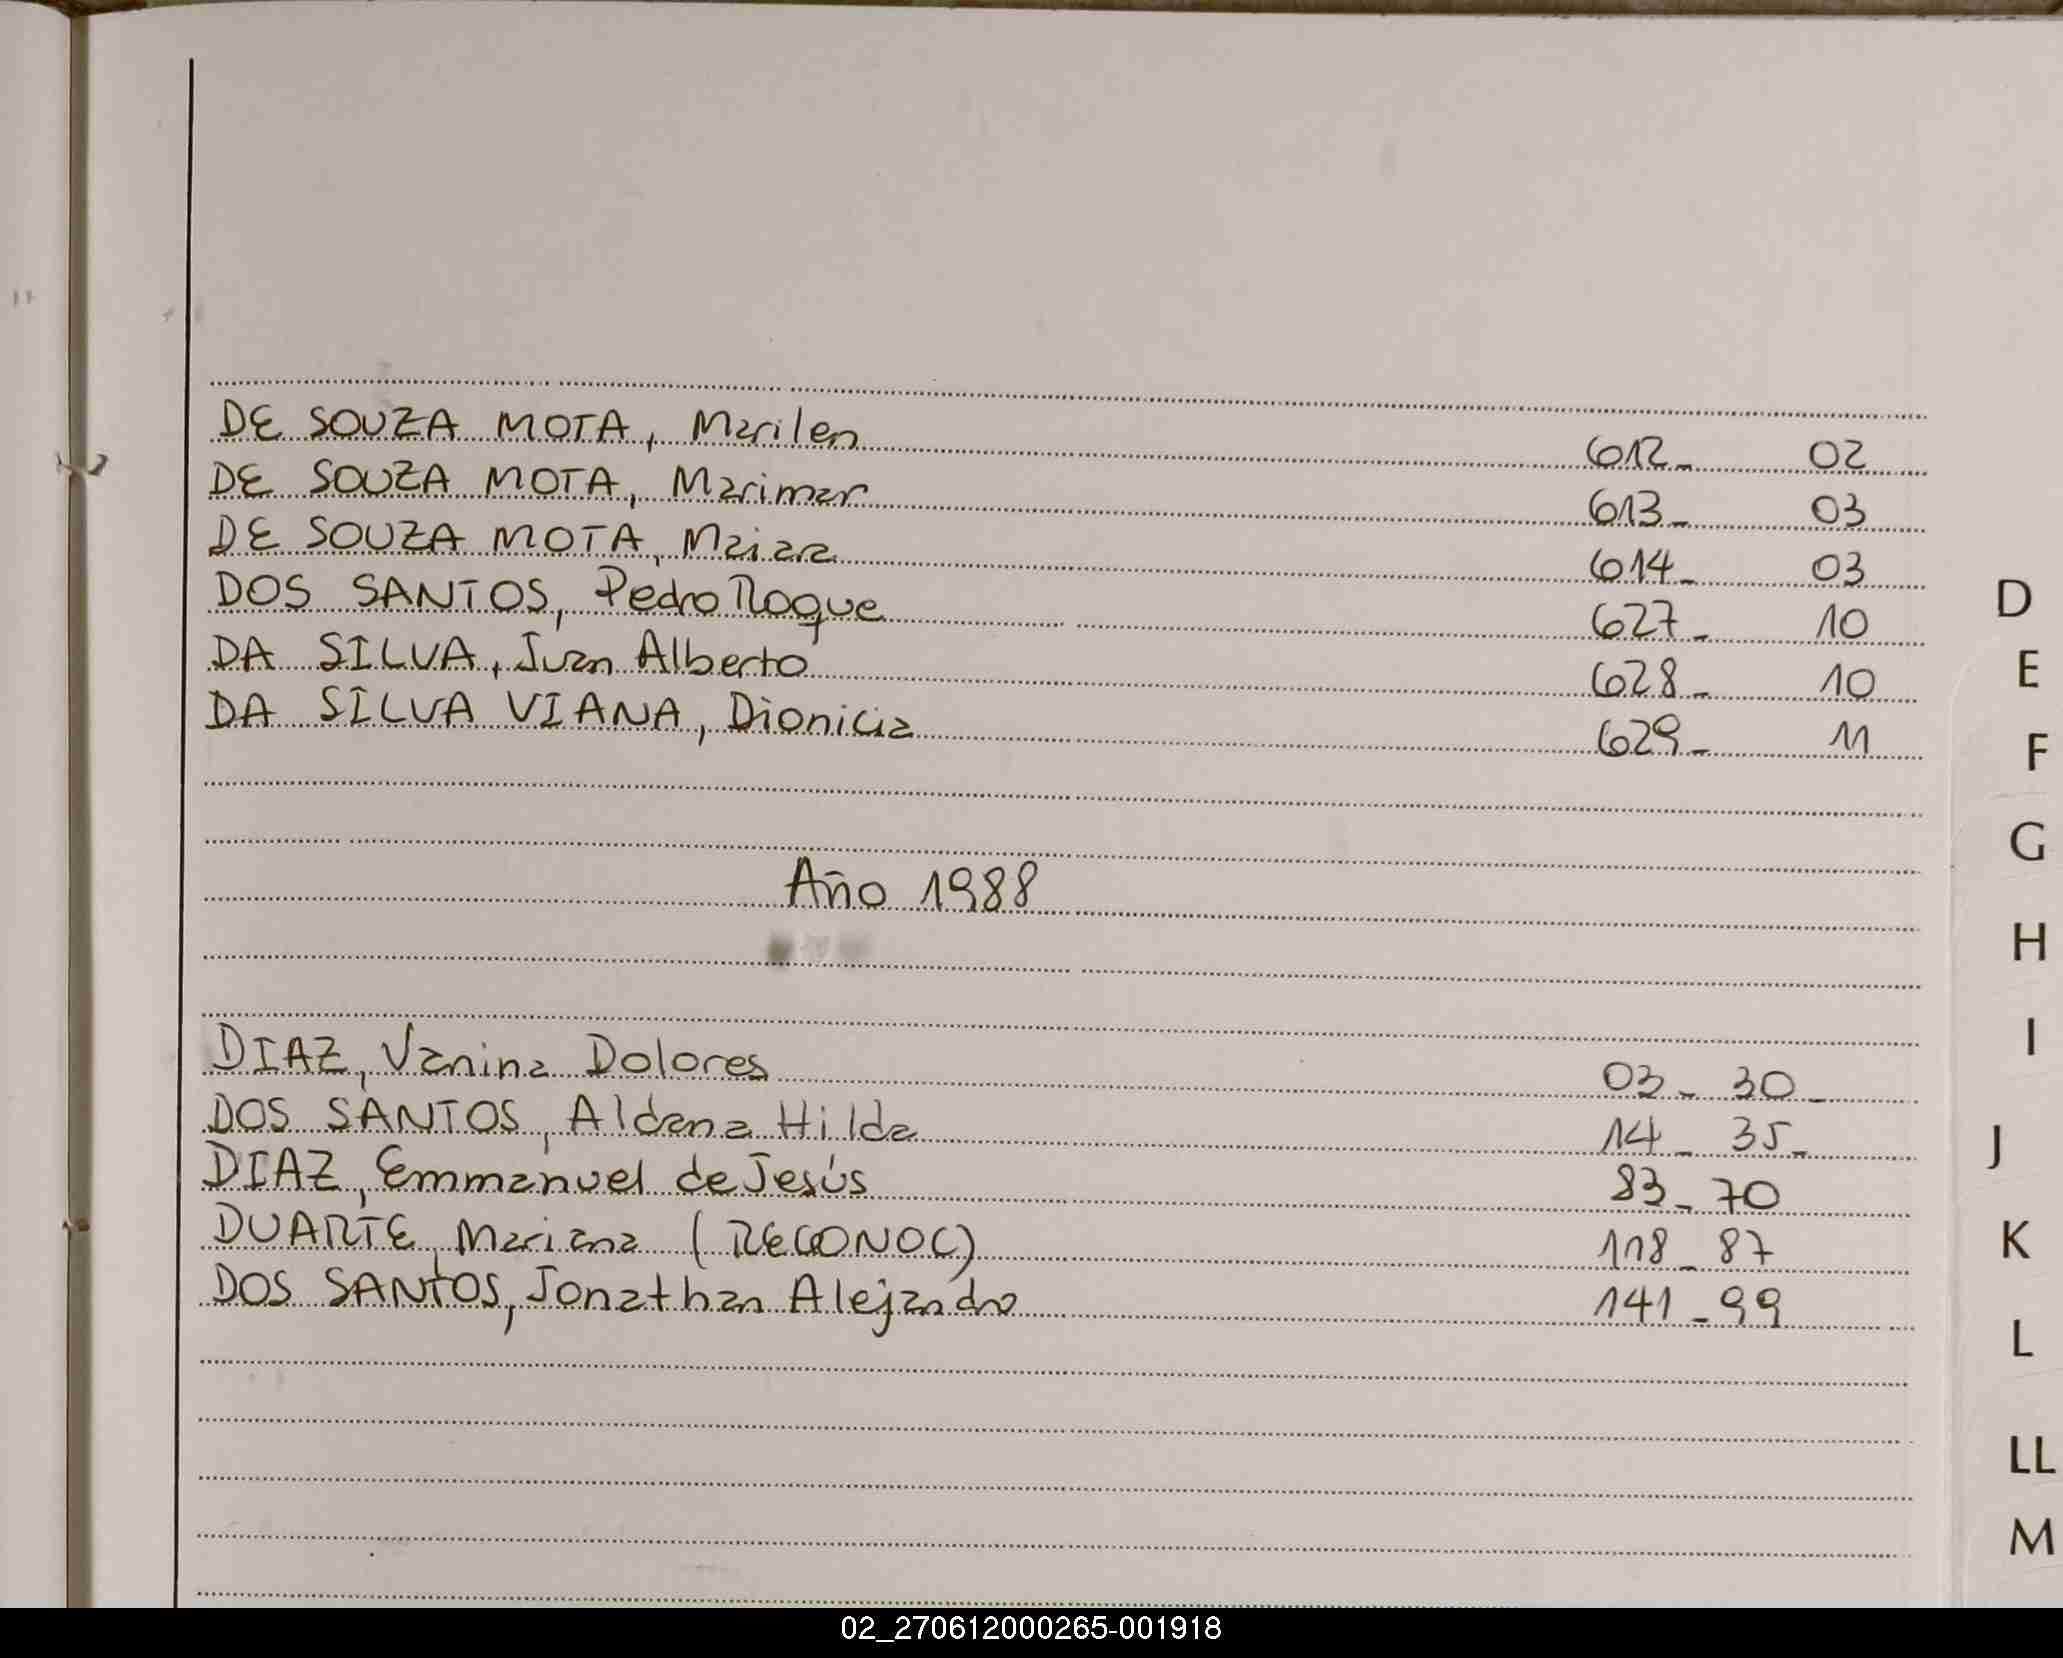 DE SOUZA MOTA, Marilen 612_ 02
DE SOUZA MOTA, Marimar 613_ 03
DE SOUZA MOTA, Maiaa 614_ 03
DOS SANTOS, Pedro Roque 627_ 10
DA SILVA, Juan Alberto 628_ 10
DA SILVA VIANA, Dionicia 629_ 11
Año 1988
DIAZ, Vanina Dolores 03_ 30_
DOS SANTOS, Aldana Hilda 14_ 35_
DIAZ, Emmanuel de Jesús 83_ 70
DUARTE, Mariana (RECONOC) 118_ 87
DOS SANTOS, Jonathan Alejandro 141_ 99
D
E
F
G
H
I
J
K
L
LL
M
02_270612000265-001918